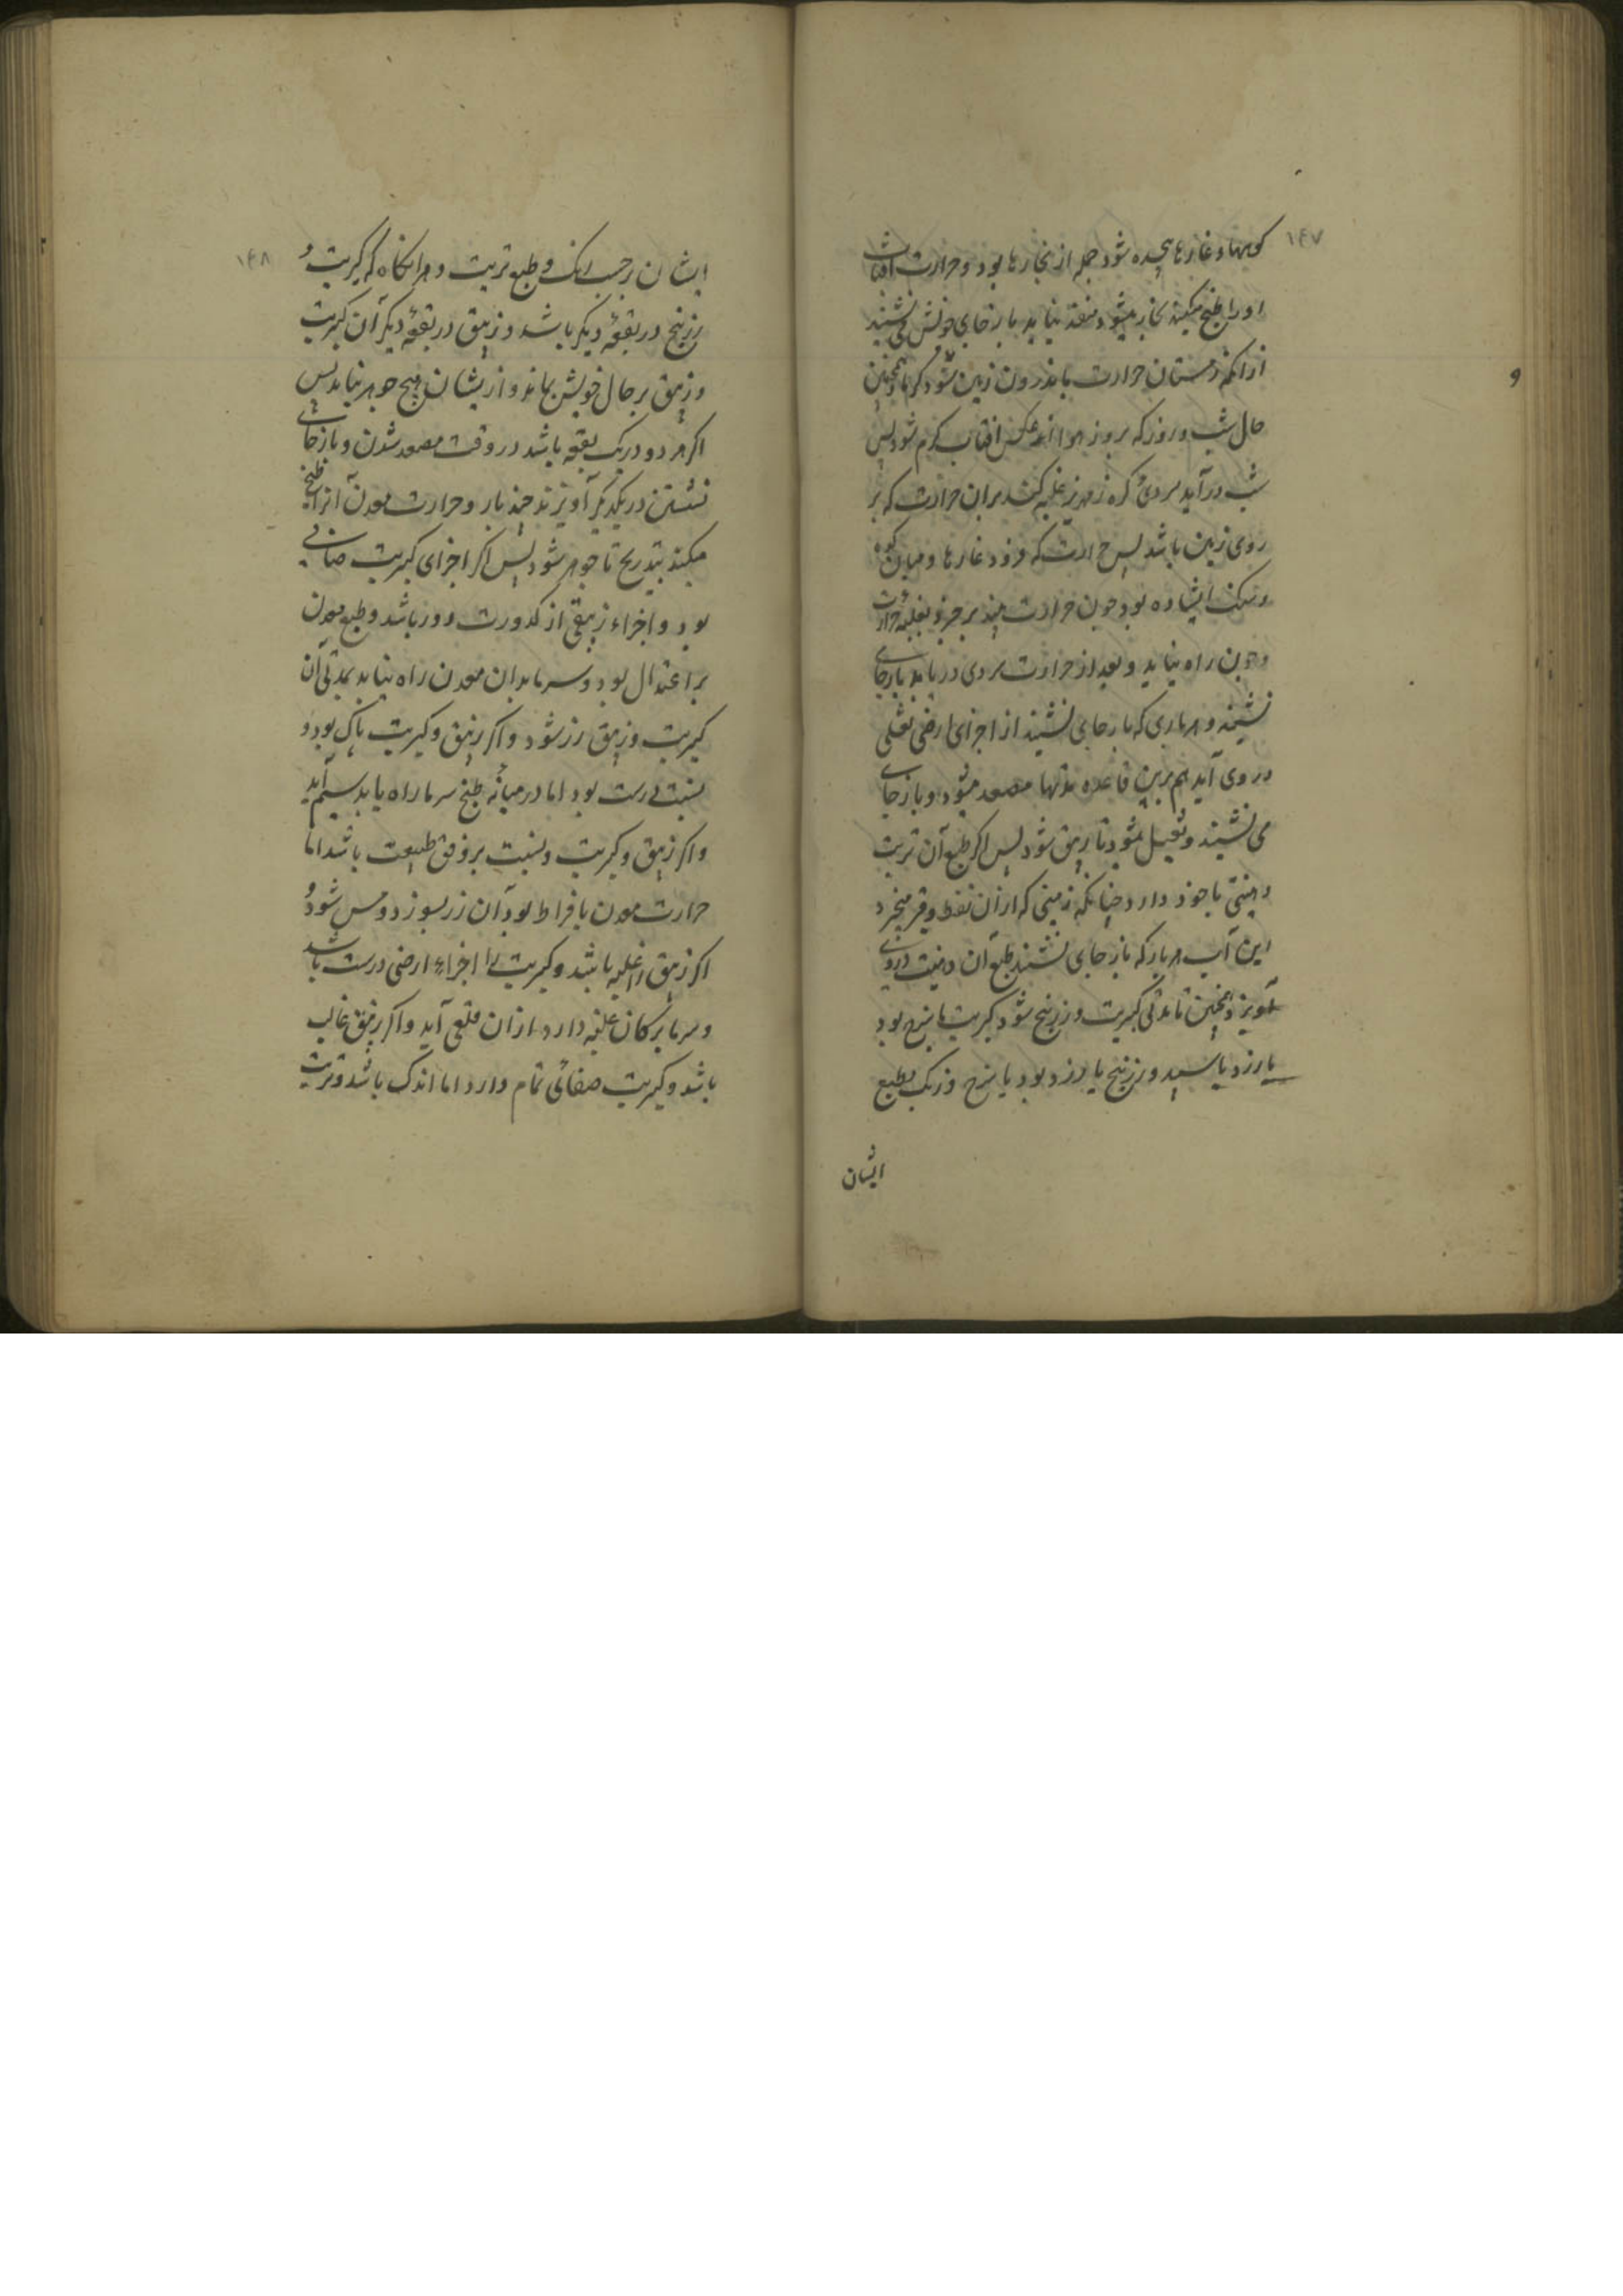 ۱۴۷
کوهها و غارها دیده شود جمله از بخارها بود و حرارت افتاب
او را طبخ میکند بخار میشود منفذ نیابد باز جای خویش می نشیند
از انکه زمستان حرارت باندرون زمین شود کرما و همچنین
حال شب و روز که بروز هوا از عکس افتاب کرم شود پس
شب در آید سردی کره زمهریر غلبه کند بران حرارت که بر
روی زمین باشد پس حرارت که فرود غارها و میان کوه
و سنک ایستاده بود چون حرارت بیند برخیزد بغلبه حرارت
و چون راه نیابد و بعد از حرارت سردی دریابد باز جای
نشیند و هر باری که باز جای نشیند از اجزای ارضی ثقلی
در وی آید هم برین قاعده مدتها مصعد میشود و باز جای
می نشیند و ثقیل میشود تا زیبق شود پس اکر طبع آن تربت
دهنیتی با خود دارد چنانکه زمینی که ازان نفط و قیر میخیزد
این آب هر بار که باز جای نشیند طبع آن دهنیت دروی
آویزد همچنین تا مدتی کبریت و زرنیخ شود کبریت یا سرخ بود
یا زرد یا سپید و زرنیخ یا زرد بود یا سرخ و رنک بطبع
ایشان
۱۴۸
ایشان بر حسب رنک و طبع تربت و هرانکاه که کبریت و
زرنیخ در بقعهٔ دیکر باشد و زیبق در بقعهٔ دیکر آن کبریت
و زیبق بر حال خویش بماند و از یشان هیچ جوهر نیاید پس
اکر هر دو در یک بقعه باشد در وقت مصعد شدن و باز جای
نشستن در یکدیکر آویزند چند بار و حرارت معدن آنرا طبخ
میکند بتدریج تا جوهر شود پس اکر اجزای کبریت صافی
بود و اجزاء زیبقی از کدورت دور باشد و طبع معدن
بر اعتدال بود و سرما بدان معدن راه نیابد بمدتی آن
کبریت و زیبق زر شود و اکر زیبق و کبریت پاک بود و
نسبت درست بود اما در میانهٔ طبخ سرما راه یابد سیم آید
و اکر زیبق و کبریت و نسبت بر وفق طبیعت باشد اما
حرارت معدن بافراط بود آن زر بسوزد و مس شود و
اکر زیبق را غلبه باشد و کبریت را اجزاء ارضی درست باشد
و سرما بر کان غلبه دارد ازان قلعی آید و اکر زیبق غالب
باشد و کبریت صفائی تمام دارد اما اندک باشد و تربت